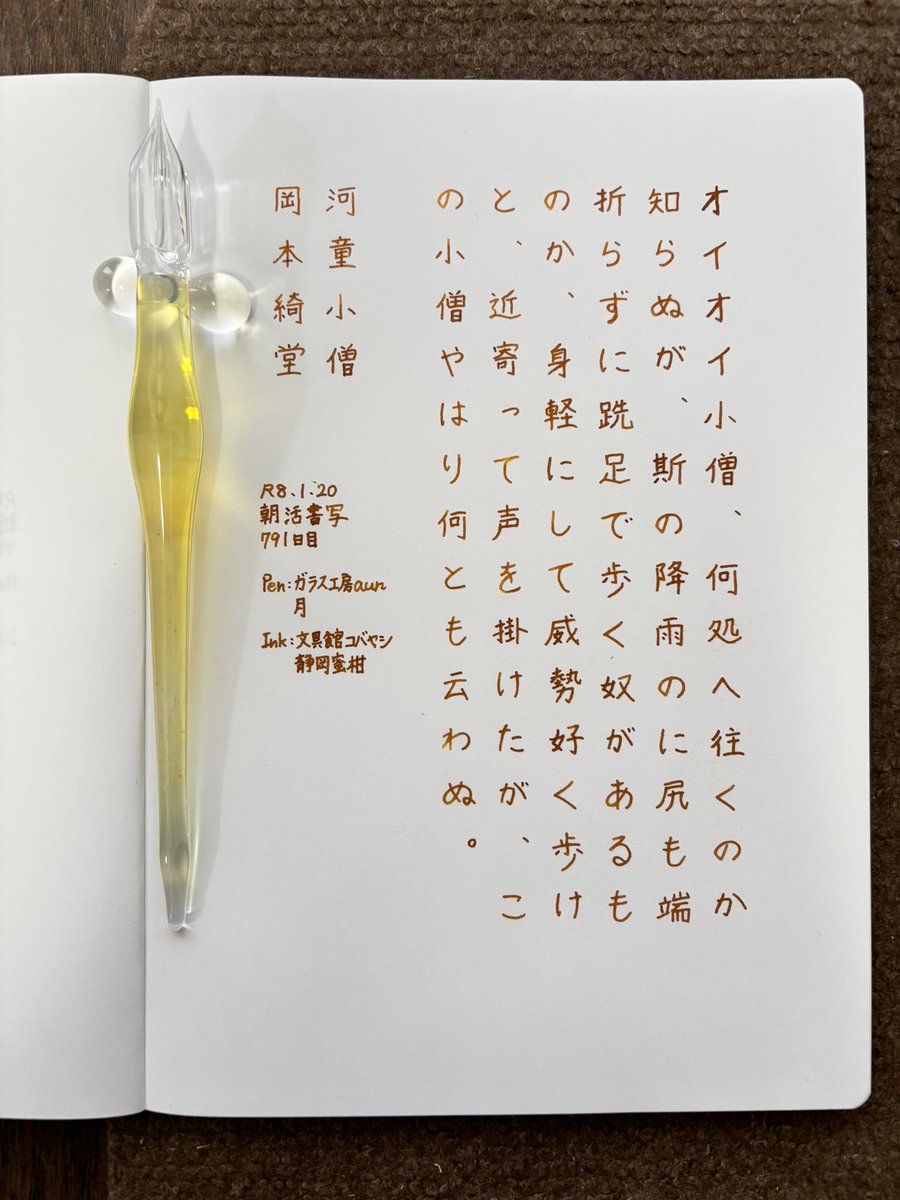 オイオイ小僧、何処へ往くのか
知らぬが、斯の降雨のに尻も端
折らずに跣足で歩く奴があるも
のか、身軽にして威勢好く歩け
と、近寄って声を掛けたが、こ
の小僧やはり何とも云わぬ。
河童小僧
岡本綺堂
R8.1.20
朝活書写
791日目
Pen:ガラス工房aun
月
Ink:文具館コバヤシ
静岡蜜柑